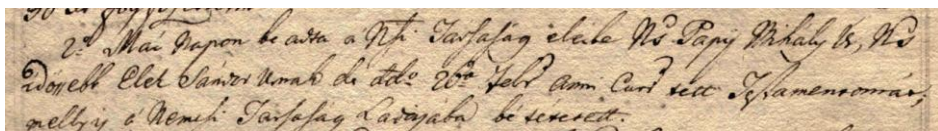 2o Mái Napon be adta a Nsi Társaság eleibe Ns Papp Mihaly Ur, Ns
Idősebb Elek Sándor Urnak de dto 26a Febr anni Curr tett Testamentomát,
melly a Nemesi Társaság Ladájába bé tétetett.